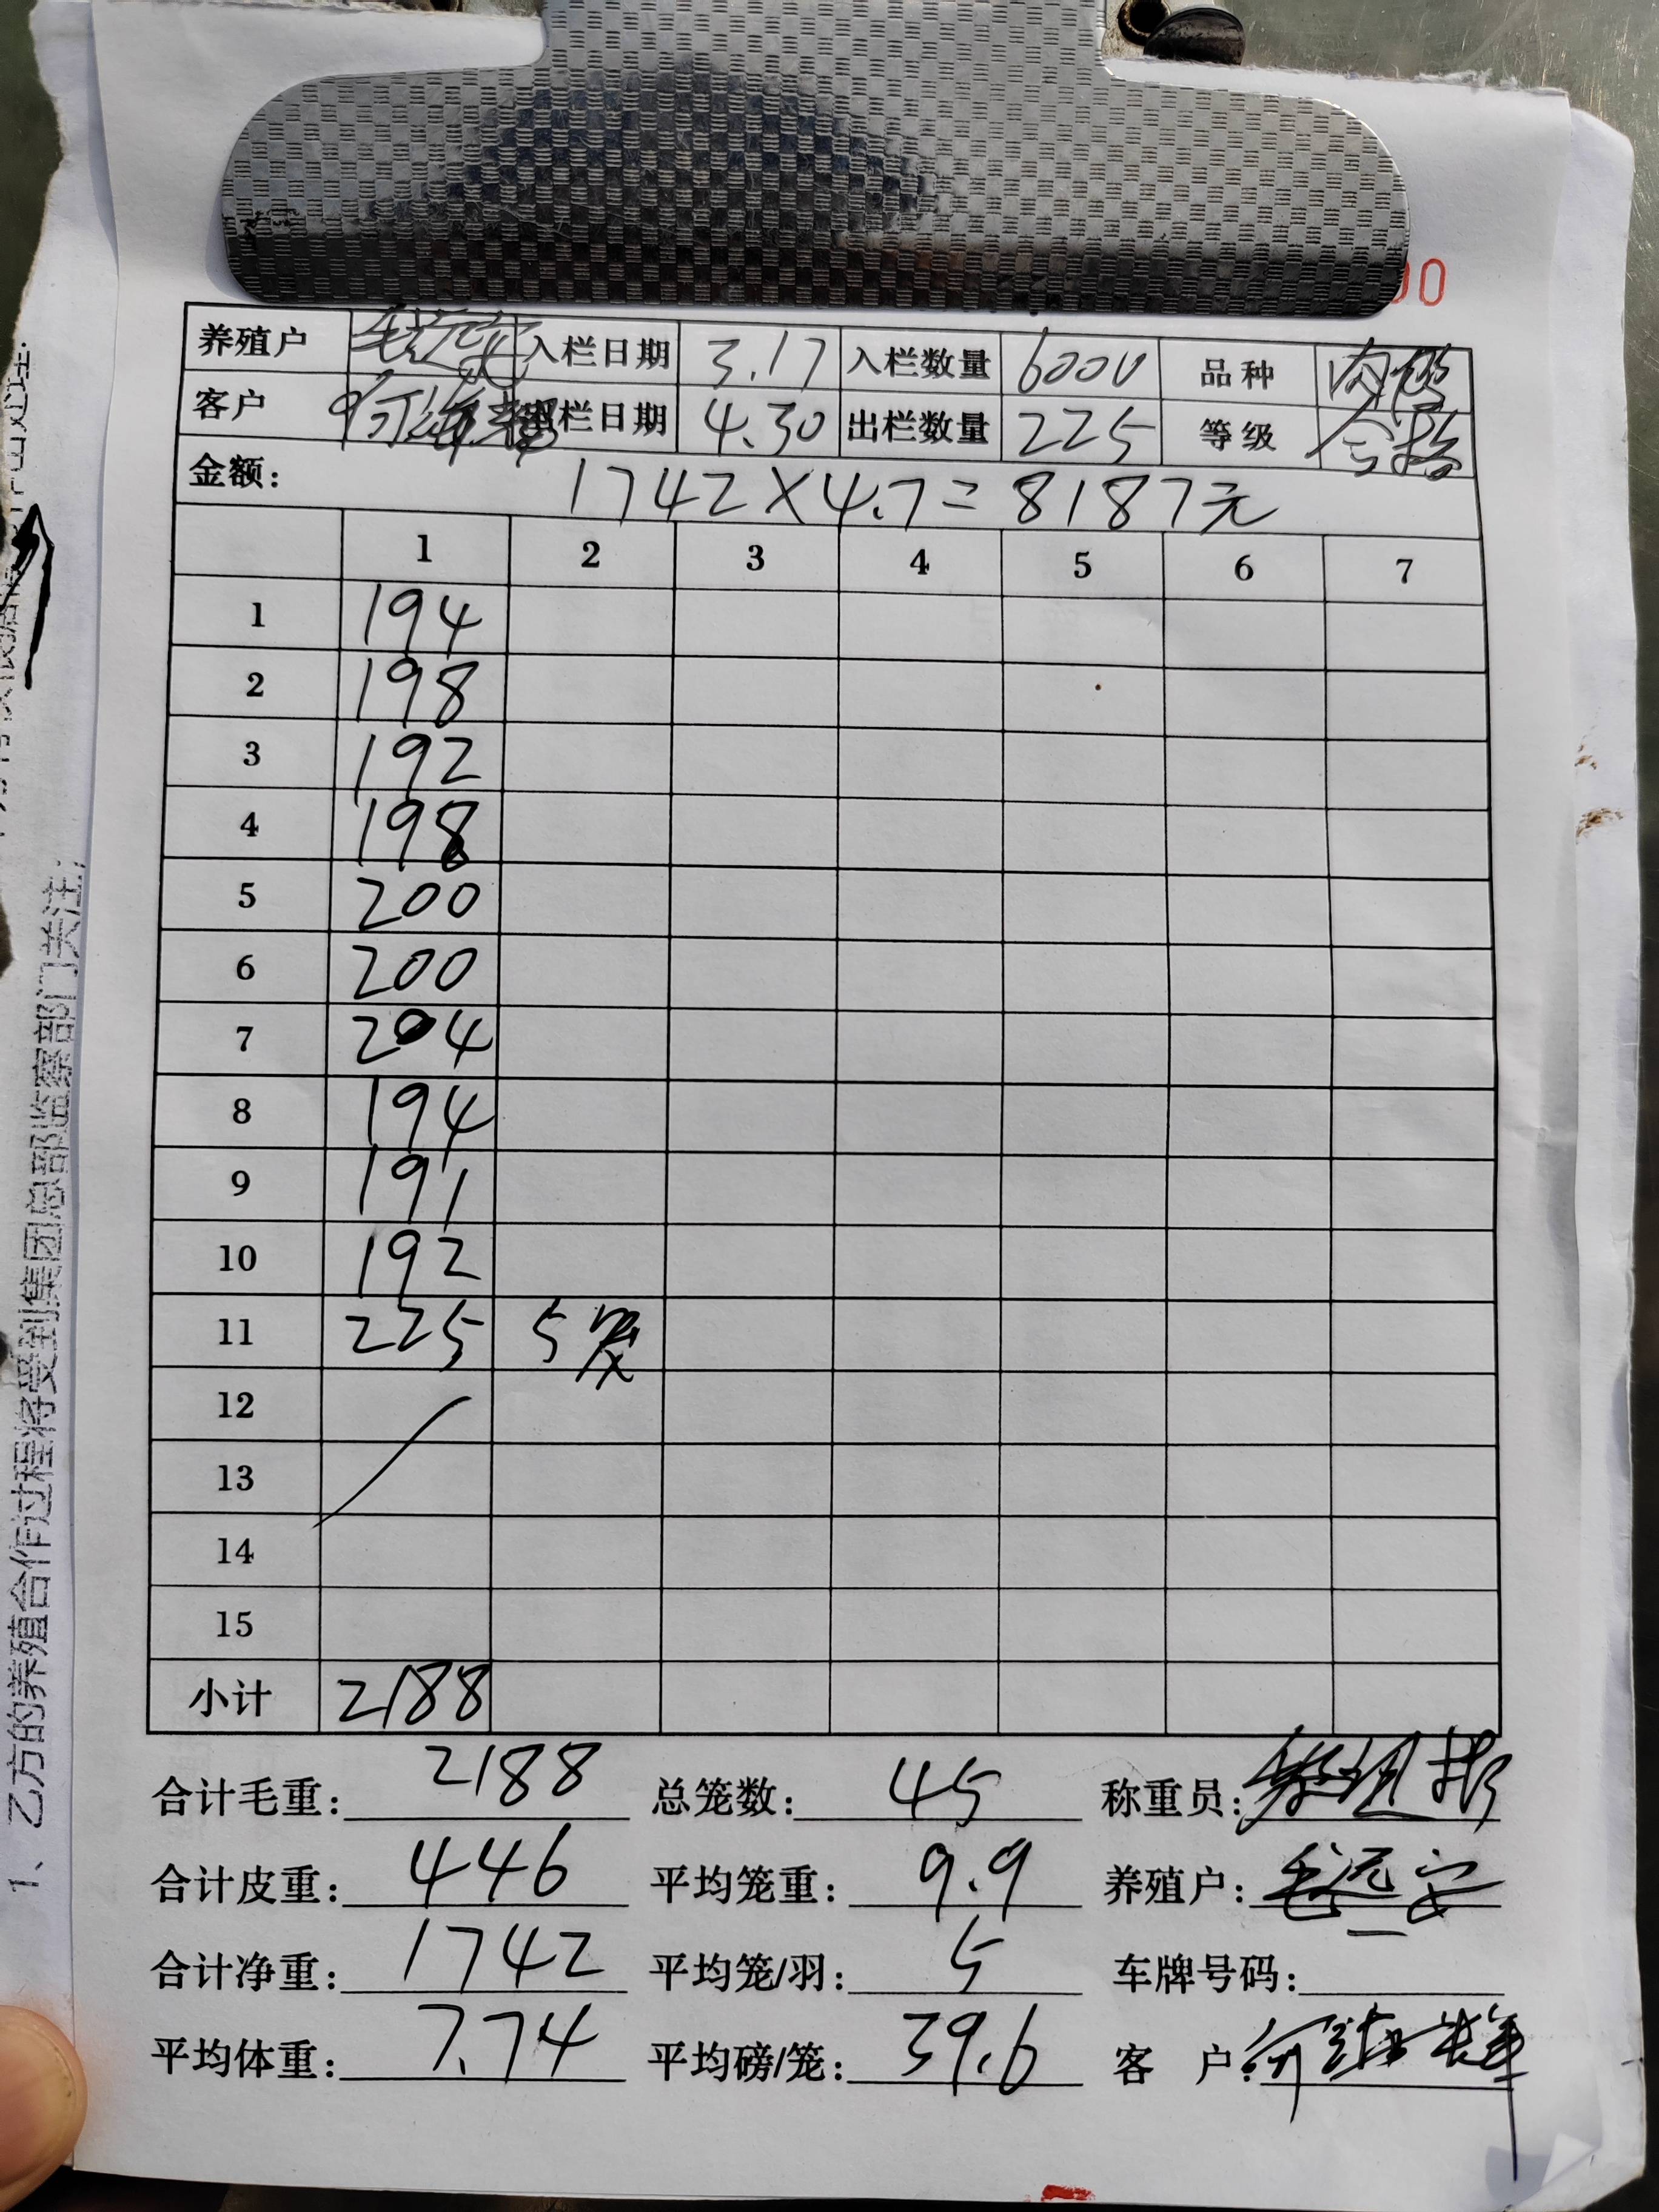 00
养殖户 毛远安 入栏日期 3.17 入栏数量 6000 品种 肉鸭
客户 何海辉 出栏日期 4.30 出栏数量 225 等级 合格
金额: 1742×4.7=8187元
1 2 3 4 5 6 7
1 194
2 198
3 192
4 198
5 200
6 200
7 204
8 194
9 191
10 192
11 225 5笼
12
13
14
15
小计 2188
合计毛重: 2188 总笼数: 45 称重员:
合计皮重: 446 平均笼重: 9.9 养殖户: 毛远安
合计净重: 1742 平均笼/羽: 5 车牌号码:
平均体重: 7.74 平均磅/笼: 39.6 客 户:
1、乙方的养殖合作过程将受到集团总部监察部门关注;